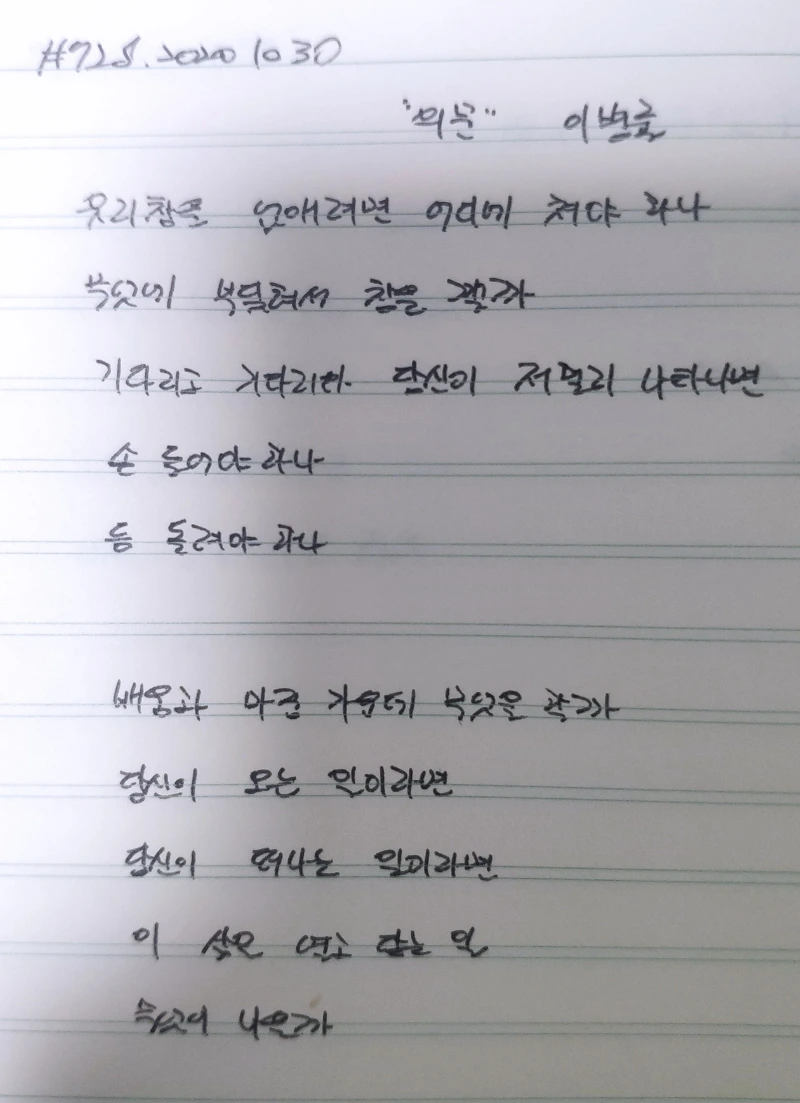 #925. 2020 10 30
"의문" 이병률
유리창을 없애려면 어디에 쳐야 하나
무엇에 부딪혀서 창을 깰까
기다리고 기다리다 당신이 저 멀리 나타나면
손 들어야 하나
등 돌려야 하나
배웅과 마중 가운데 무엇을 할까
당신이 오는 일이라면
당신이 떠나는 일이라면
이 삶은 열고 닫는 일
무엇이 나을까